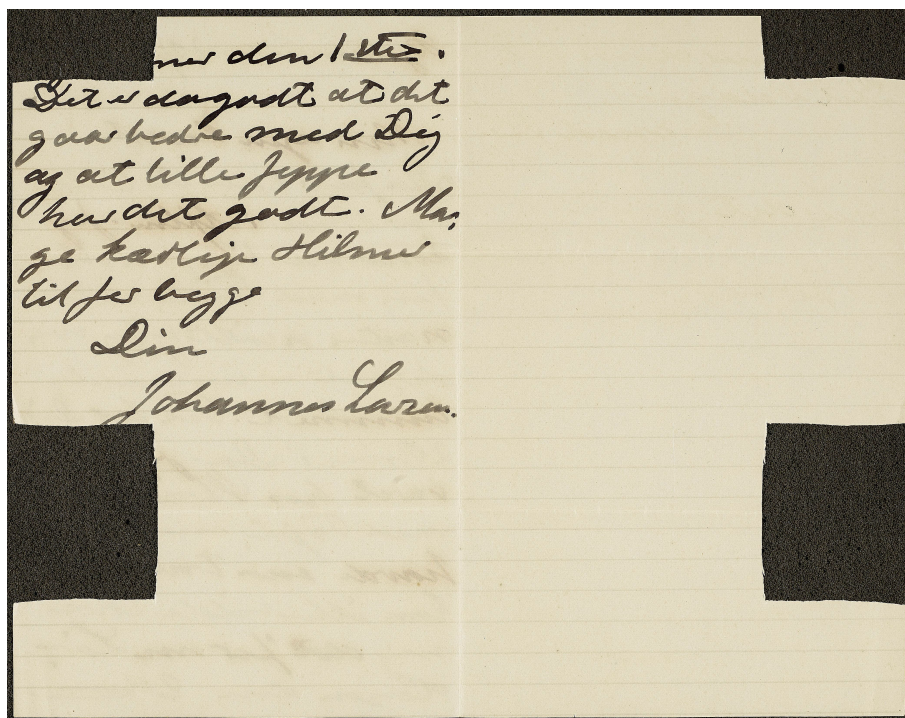 mer den 1ste.
Det er da godt at det
gaar bedre med Dig
og at lille Jeppe
har det godt. Man,
ge kærlige Hilsner
til Jer begge
Din
Johannes Larsen.